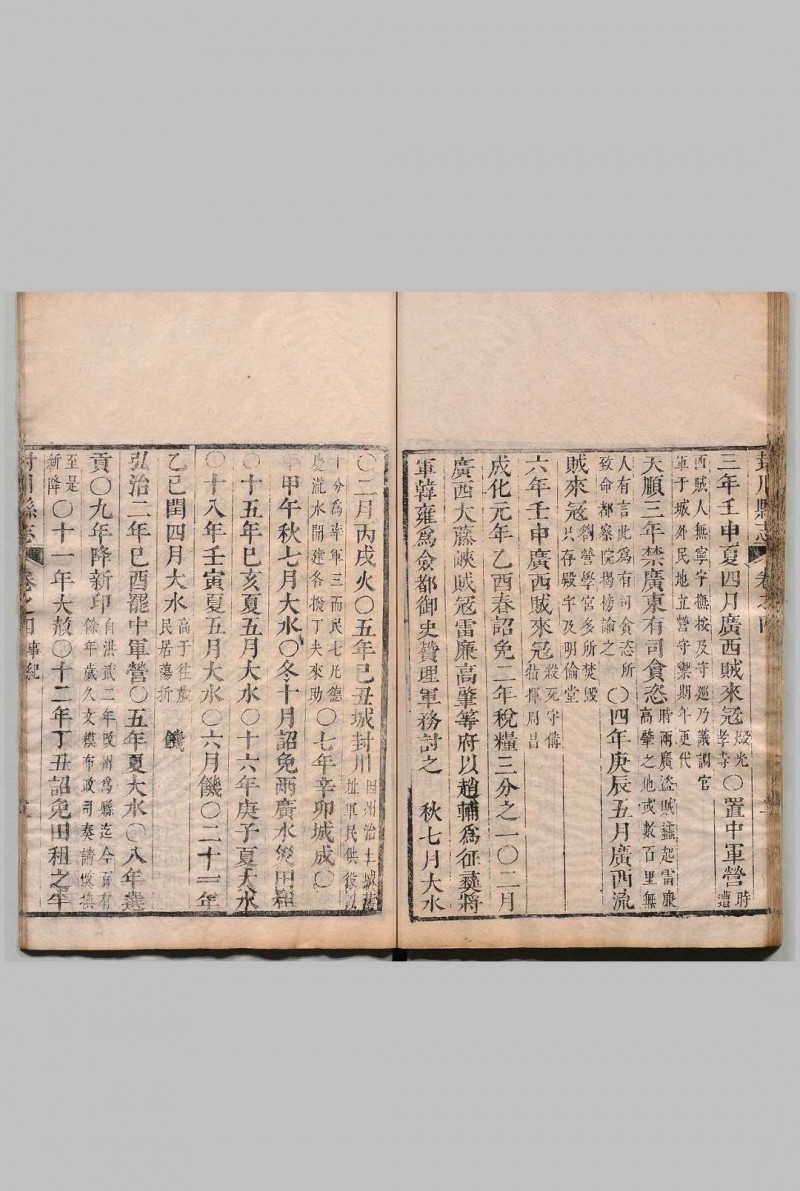 封川縣志 卷之四
三年壬申夏四月廣西賊來寇燬光孝寺〇置中軍營時遭
西賊人無寧字撫按及守廵乃議調官軍于城外民地立營守禦期年更代
天順三年禁廣東有司貪恣時兩廣盜賊蠭起雷廉高肇之地或數百里無
人有言此為有司貪恣所致命都察院揭榜諭之〇四年庚辰五月廣西流
賊來寇劉營學宮多所焚毀只存殿宇及明倫堂
六年壬申廣西賊來寇殺死守備指揮周昌
成化元年乙酉春詔免二年稅糧三分之一〇二月
廣西大藤峽賊寇雷廉高肇等府以趙輔為征蠻將
軍韓雍為僉都御史贊理軍務討之 秋七月大水
〇二月丙戌火〇五年己丑城封川因州治土城舊址軍民供役以
十分為率軍三而民七凡德慶瀧水開建各撥丁夫來助〇七年辛卯城成〇
甲午秋七月大水〇冬十月詔免兩廣水災田租
〇十五年己亥夏五月大水〇十六年庚子夏大水
〇十八年壬寅夏五月大水〇六月饑〇二十一年
乙巳閏四月大水高于往歲民居蕩折 饑
弘治二年己酉罷中軍營〇五年夏大水〇八年選
貢〇九年降新印自洪武二年改州為縣迄今百有餘年歲久文模布政司奏請獎換
至是新降〇十一年大赦〇十二年丁丑詔免田租之半
封川縣志 卷之四 事紀